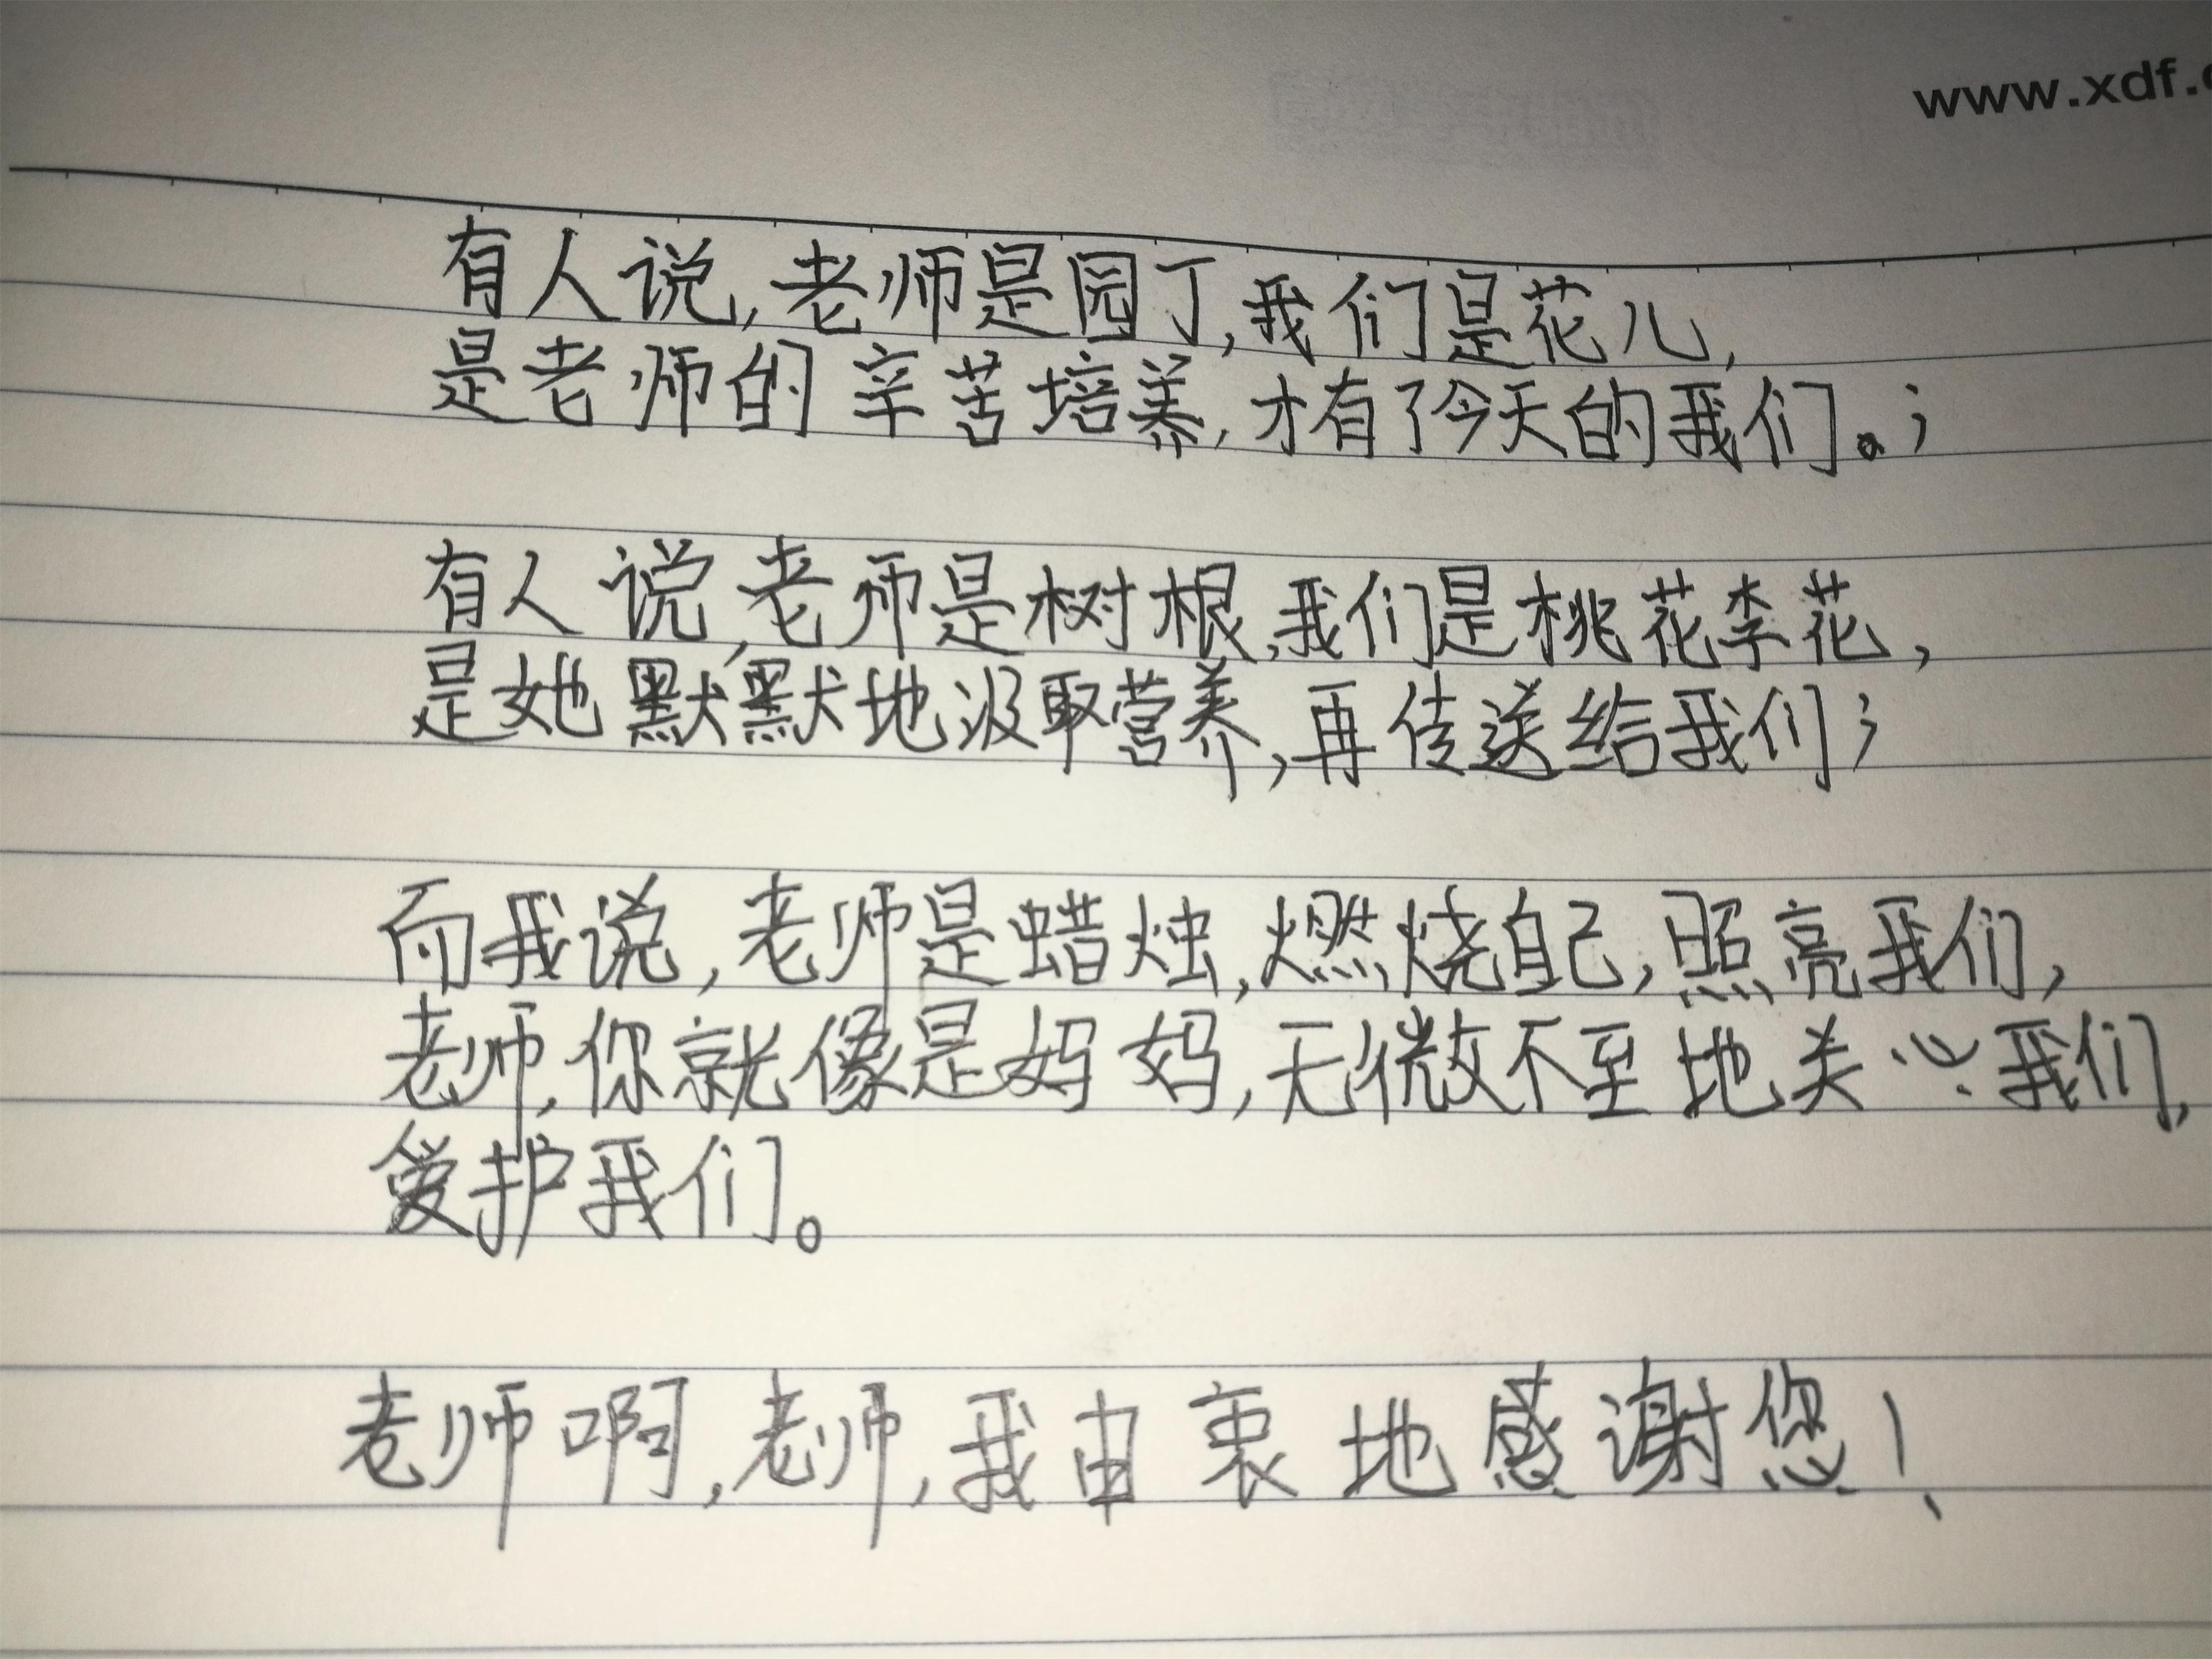 www.xdf.c
有人说,老师是园丁,我们是花儿,
是老师的辛苦培养,才有了今天的我们。;
有人说,老师是树根,我们是桃花李花,
是她默默地汲取营养,再传送给我们;
而我说,老师是蜡烛,燃烧自己,照亮我们,
老师,你就像是妈妈,无微不至地关心我们,
爱护我们。
老师啊,老师,我由衷地感谢您!